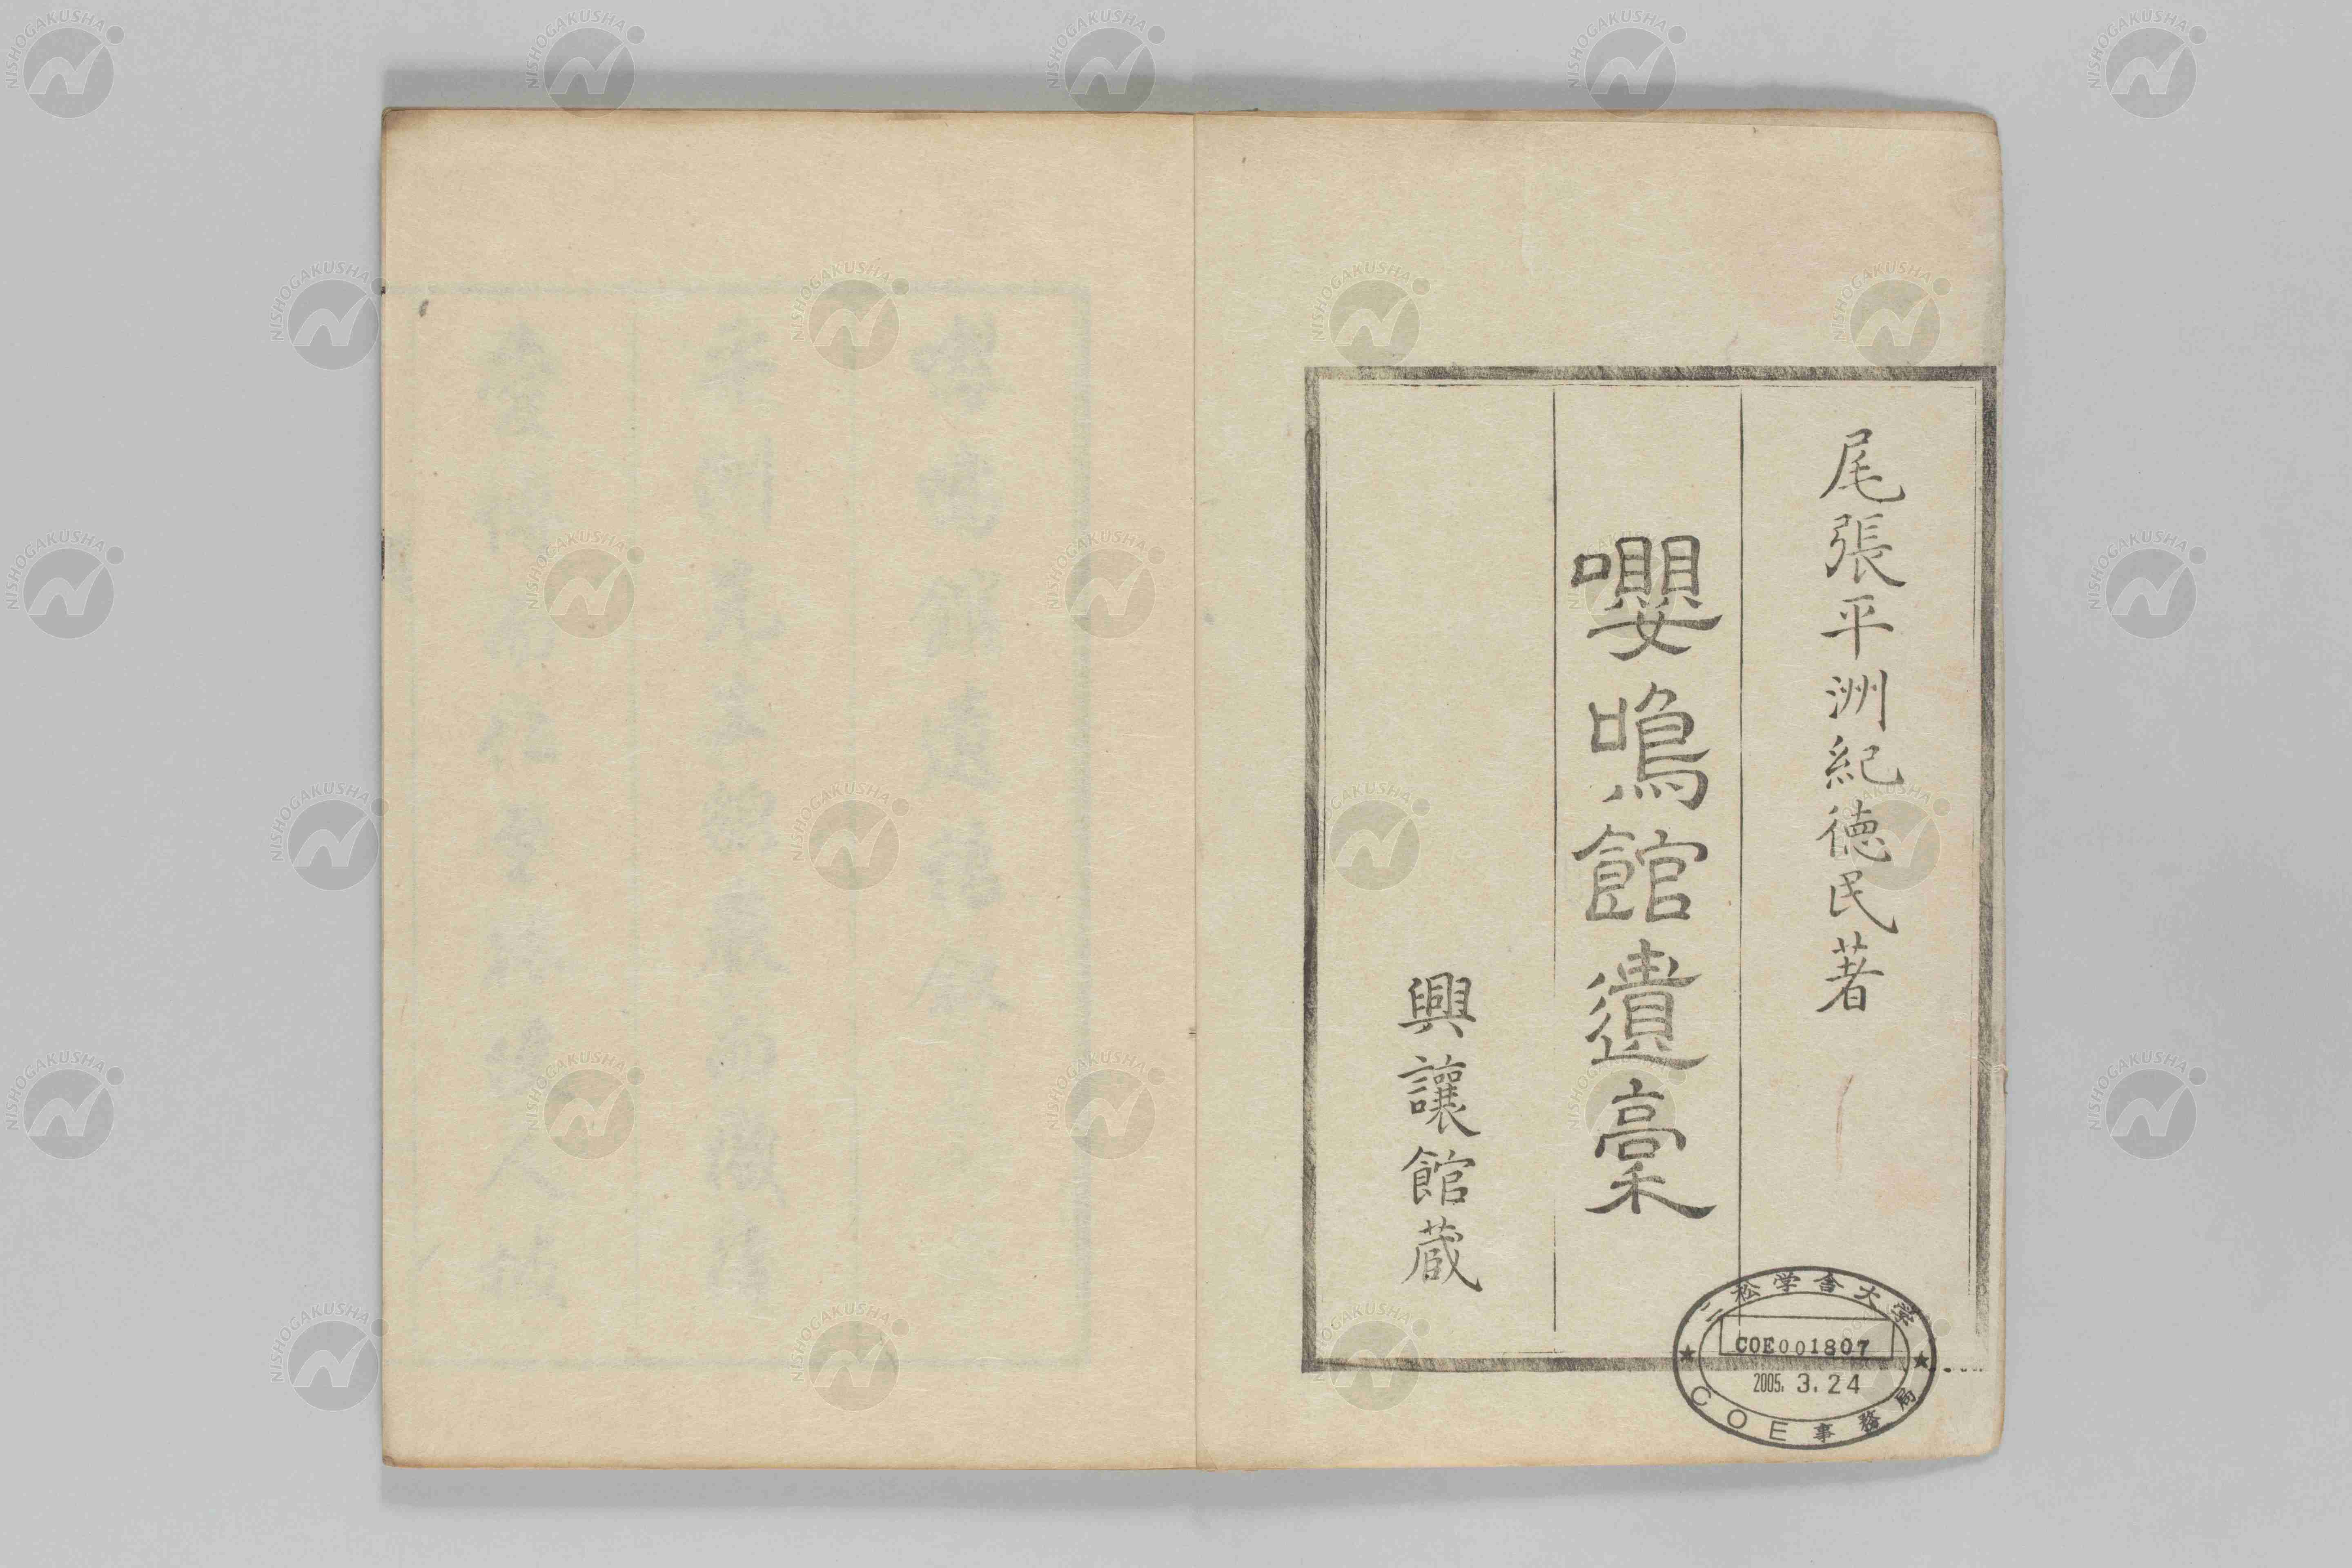 尾張平洲紀德民著
嚶鳴館遺稾
興讓館蔵
二松学舎大学
COE001807
2005. 3. 24
COE事務局
NISHOGAKUSHA